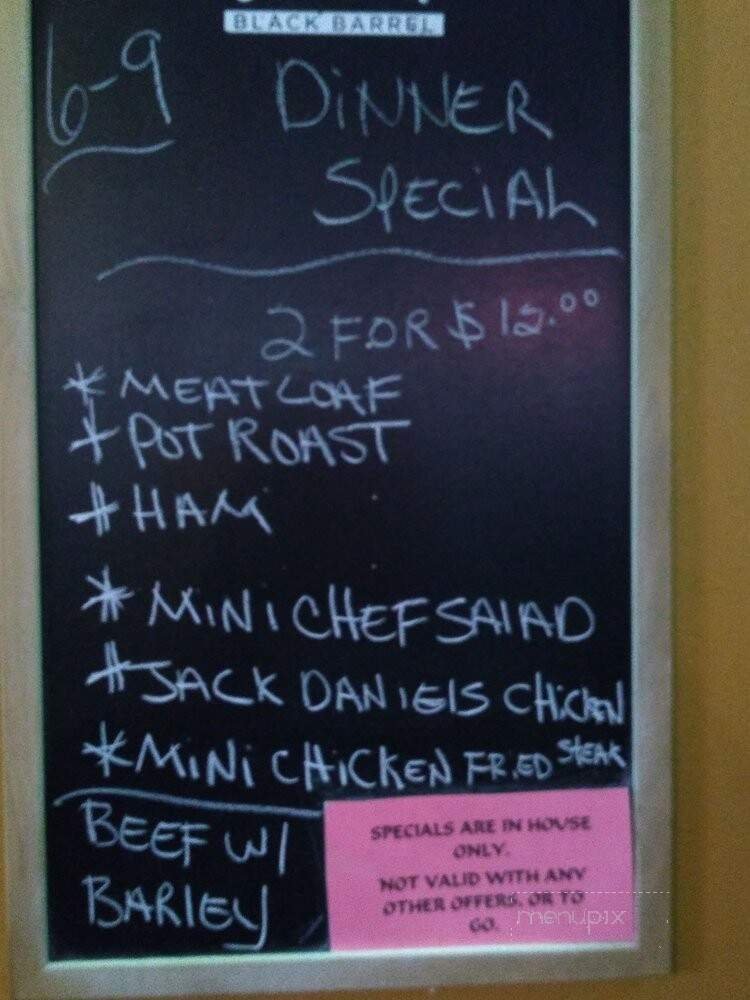 BLACK BARREL
6-9
DiNNER
SPECiAL
2 FOR $12.00
* MEAT LOAF
* POT ROAST
* HAM
* MiNi CHEF SALAD
* JACK DANIELS CHiCKEN
* MiNi CHiCKEN FRiED STEAK
BEEF W/
BARLEY
SPECIALS ARE IN HOUSE
ONLY.
NOT VALID WITH ANY
OTHER OFFERS, OR TO
GO.
menupix